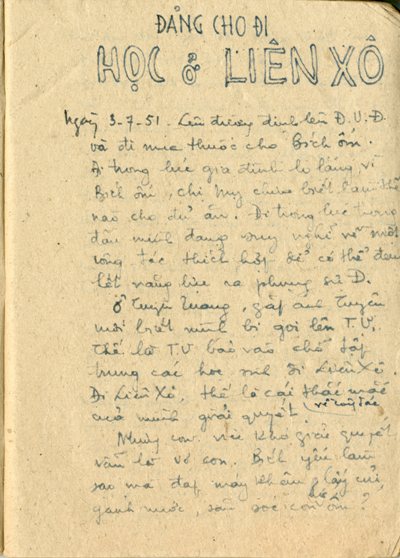 ĐẢNG CHO ĐI
HỌC ở LIÊN XÔ
Ngày 3-7-51. Lên đường định lên Đ.U.Đ.
và đi mua thuốc cho Bích ốm.
Đi trong lúc gia đình lo lắng, vì
Bích ốm, chị Mỹ chưa biết làm thế
nào cho đủ ăn. Đi trong lúc trong
đầu mình đang suy nghĩ về một
công tác thích hợp để có thể đem
hết năng lực ra phụng sự Đ.
Ở Tuyên Quang, gặp anh Tuyên
mới biết mình bị gọi lên T.Ư,
thế là T.Ư bảo vào chỗ tập
trung các học sinh đi Liên Xô.
Đi Liên Xô, thế là cái thắc mắc
của mình giải quyết về công tác
Nhưng còn việc khó giải quyết
vẫn là vợ con. Bích yếu làm
sao mà đạp máy khâu, lấy củi,
gánh nước, săn sóc con ốm?